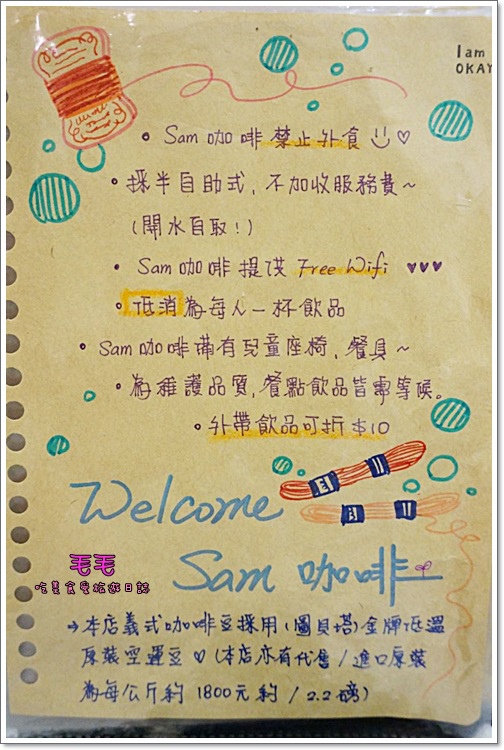 I am
OKAY
• Sam 咖啡禁止外食
• 採半自助式，不加收服務費~
(開水自取!)
• Sam 咖啡提供 Free Wifi ♥♥♥
• 低消為每人一杯飲品
• Sam 咖啡備有兒童座椅，餐具~
• 為維護品質，餐點飲品皆需等候。
• 外帶飲品可折$10
Welcome
Sam 咖啡
毛毛
吃美食愛旅遊日誌
→本店義式咖啡豆採用(圖貝塔)金牌低溫
原裝空運豆♡(本店亦有代售/進口原裝
為每公斤約1800元約/2.2磅)